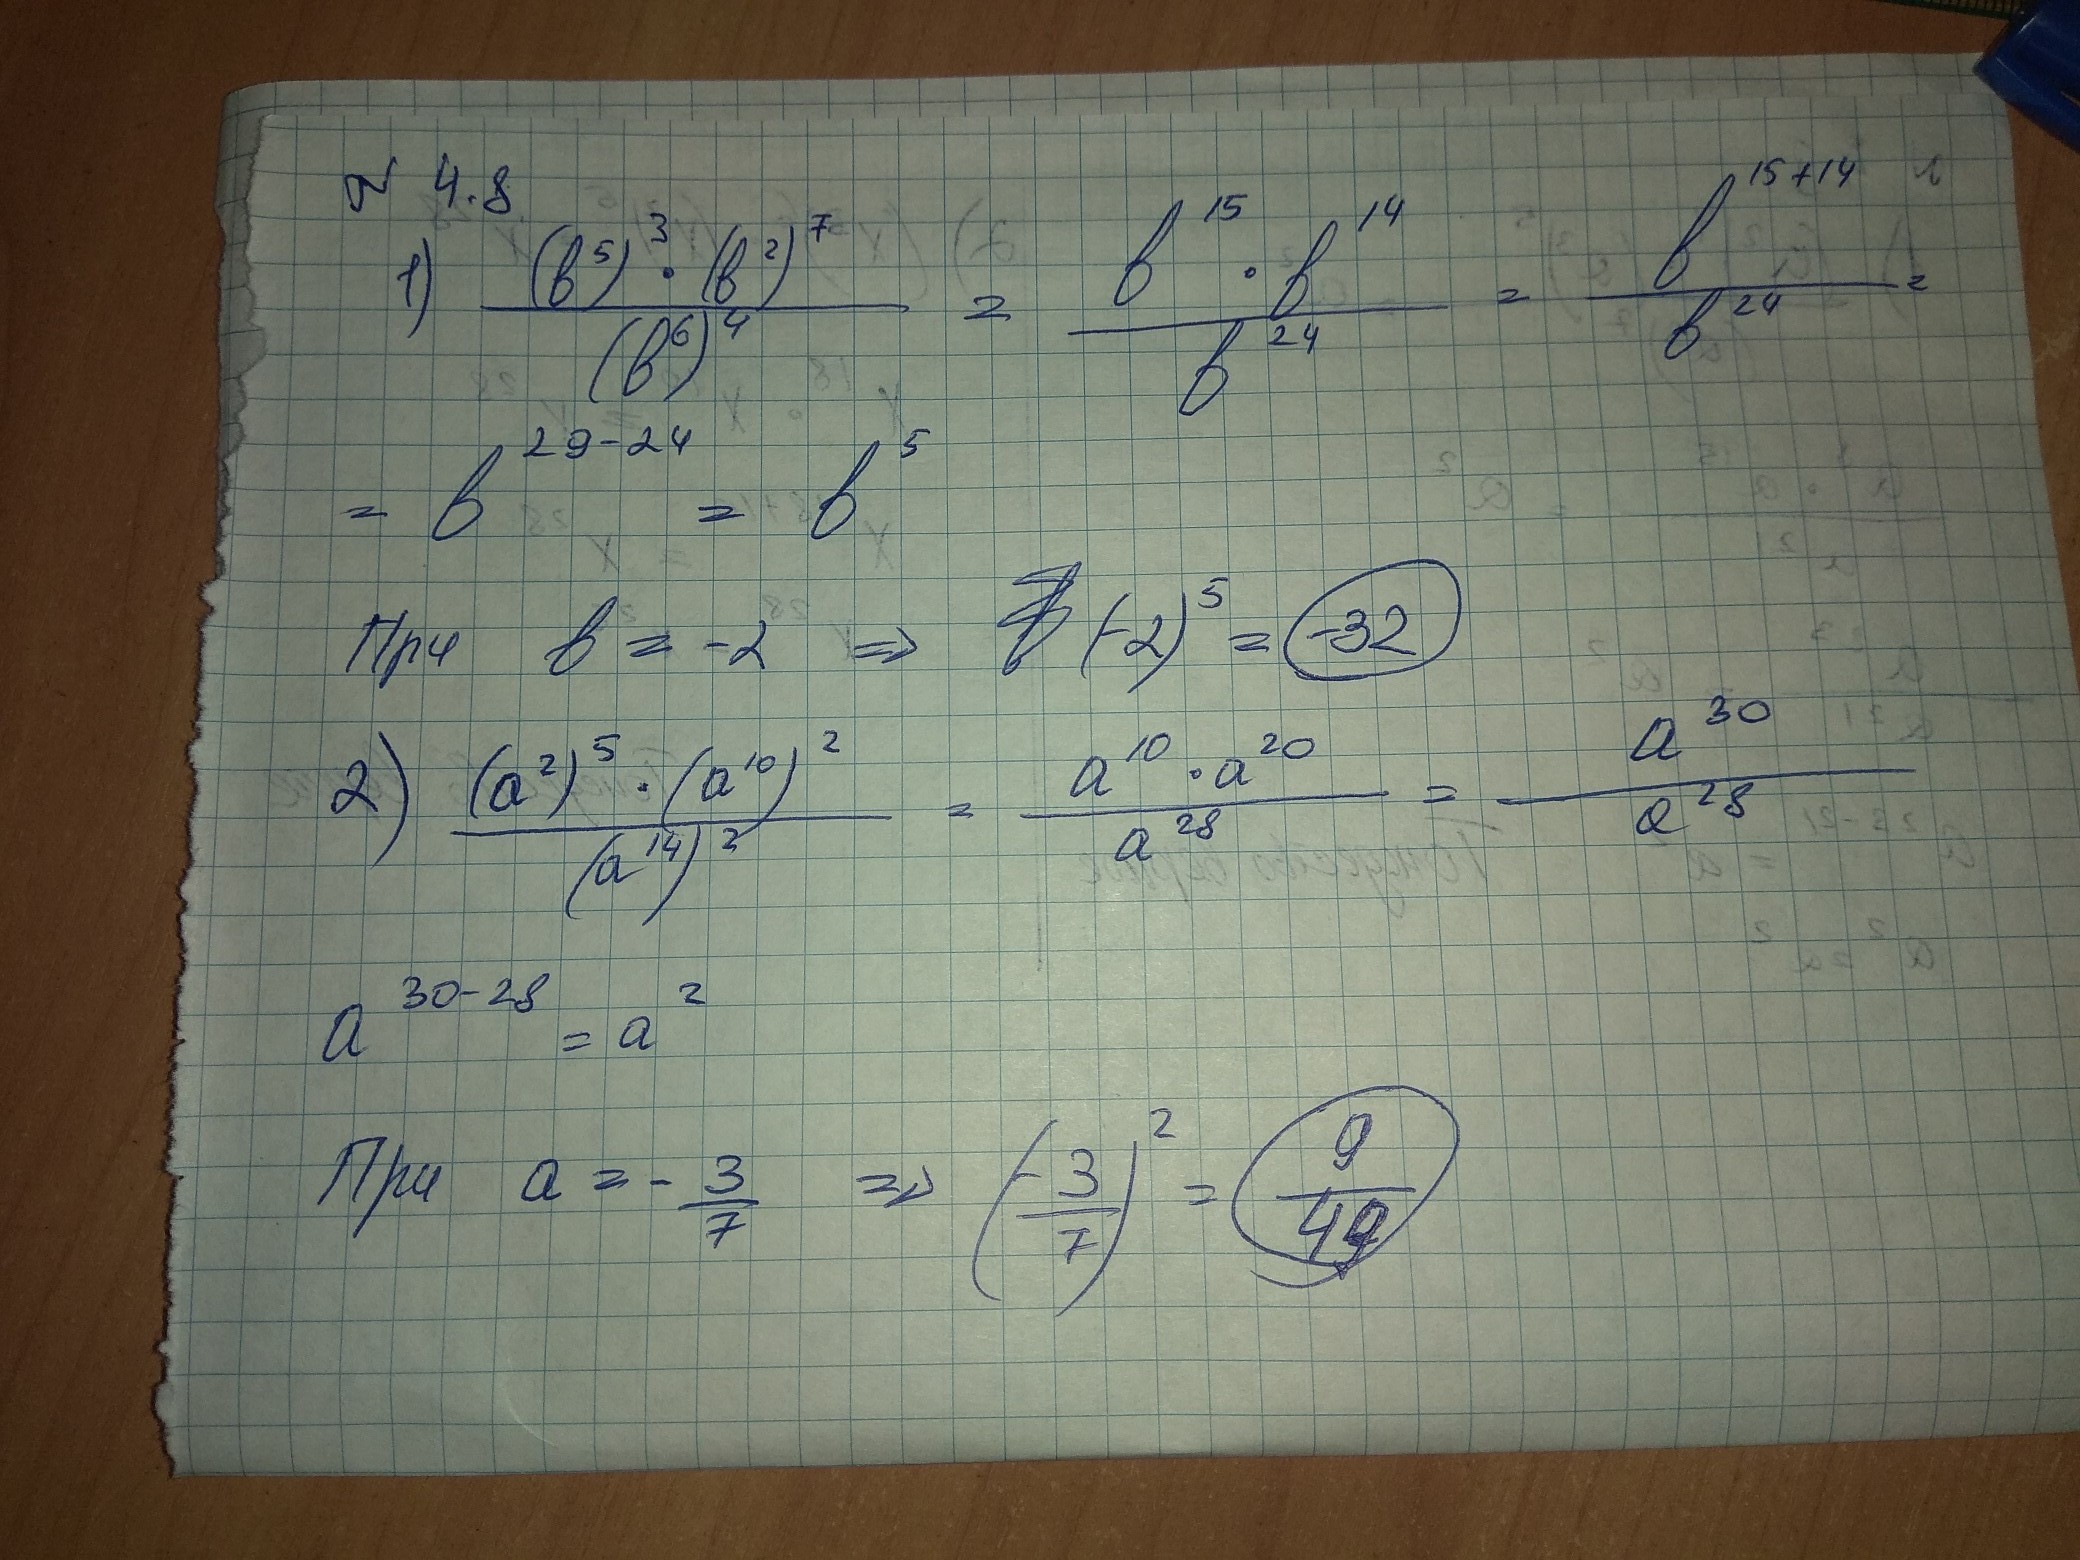 № 4.8
1) (b⁵)³ · (b²)⁷ / (b⁶)⁴ = b¹⁵ · b¹⁴ / b²⁴ = b¹⁵⁺¹⁴ / b²⁴ =
= b²⁹⁻²⁴ = b⁵
При b = -2 => (-2)⁵ = -32
2) (a²)⁵ · (a¹⁰)² / (a¹⁴)² = a¹⁰ · a²⁰ / a²⁸ = a³⁰ / a²⁸
a³⁰⁻²⁸ = a²
При a = - 3/7 => (- 3/7)² = 9/49